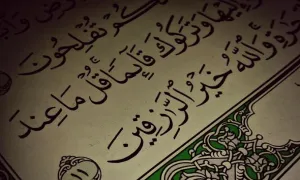 تُفْلِحُونَ
إِلَيْهَا وَتَرَكُوكَ قَآئِمًا قُلْ مَا عِندَ
وَٱللَّهُ خَيْرُ ٱلرَّٰزِقِينَ
١١